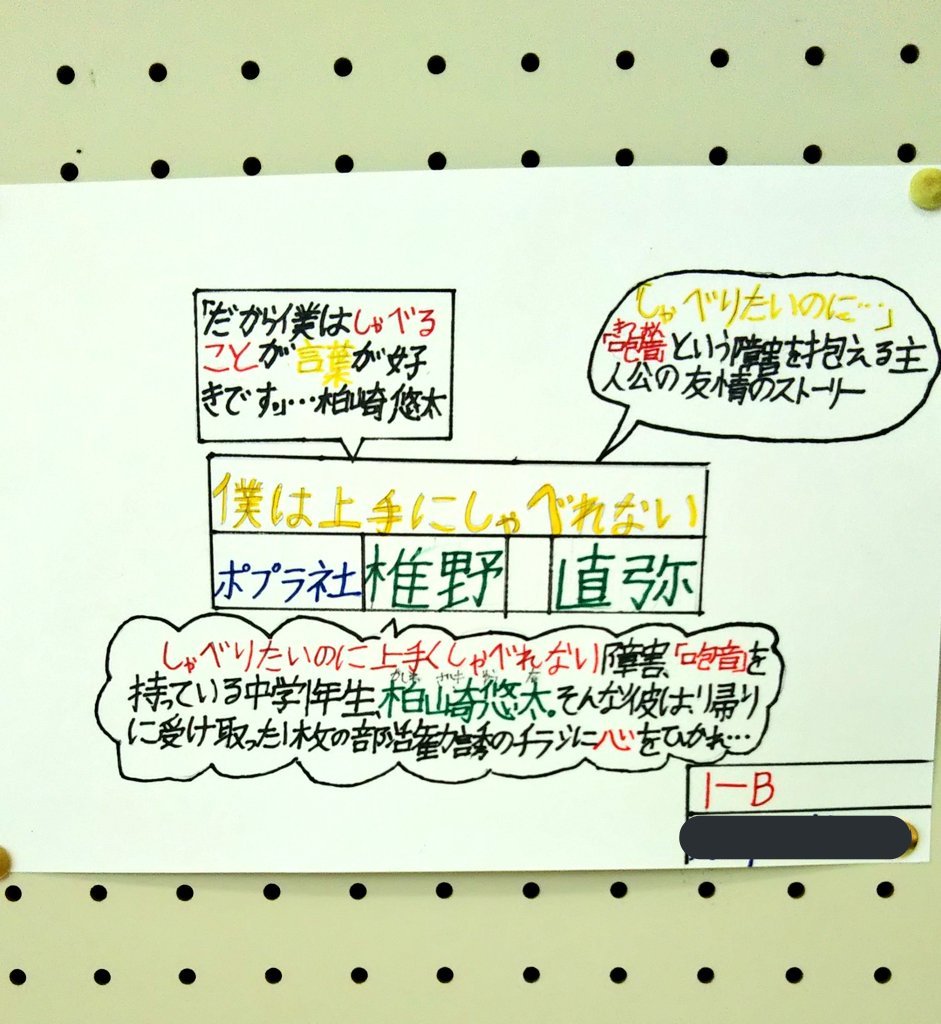 「だから僕はしゃべる
ことが言葉が好
きです。」…柏崎悠太
「しゃべりたいのに…」
きつおん
「吃音」という障害を抱える主
人公の友情のストーリー
僕は上手にしゃべれない
ポプラ社 椎野 直弥
しゃべりたいのに上手くしゃべれない障害、「吃音」を
かしわ ざき ゆう た
持っている中学1年生、柏崎悠太。そんな彼は、帰り
に受け取った1枚の部活勧誘のチラシに心をひかれ…
1-B